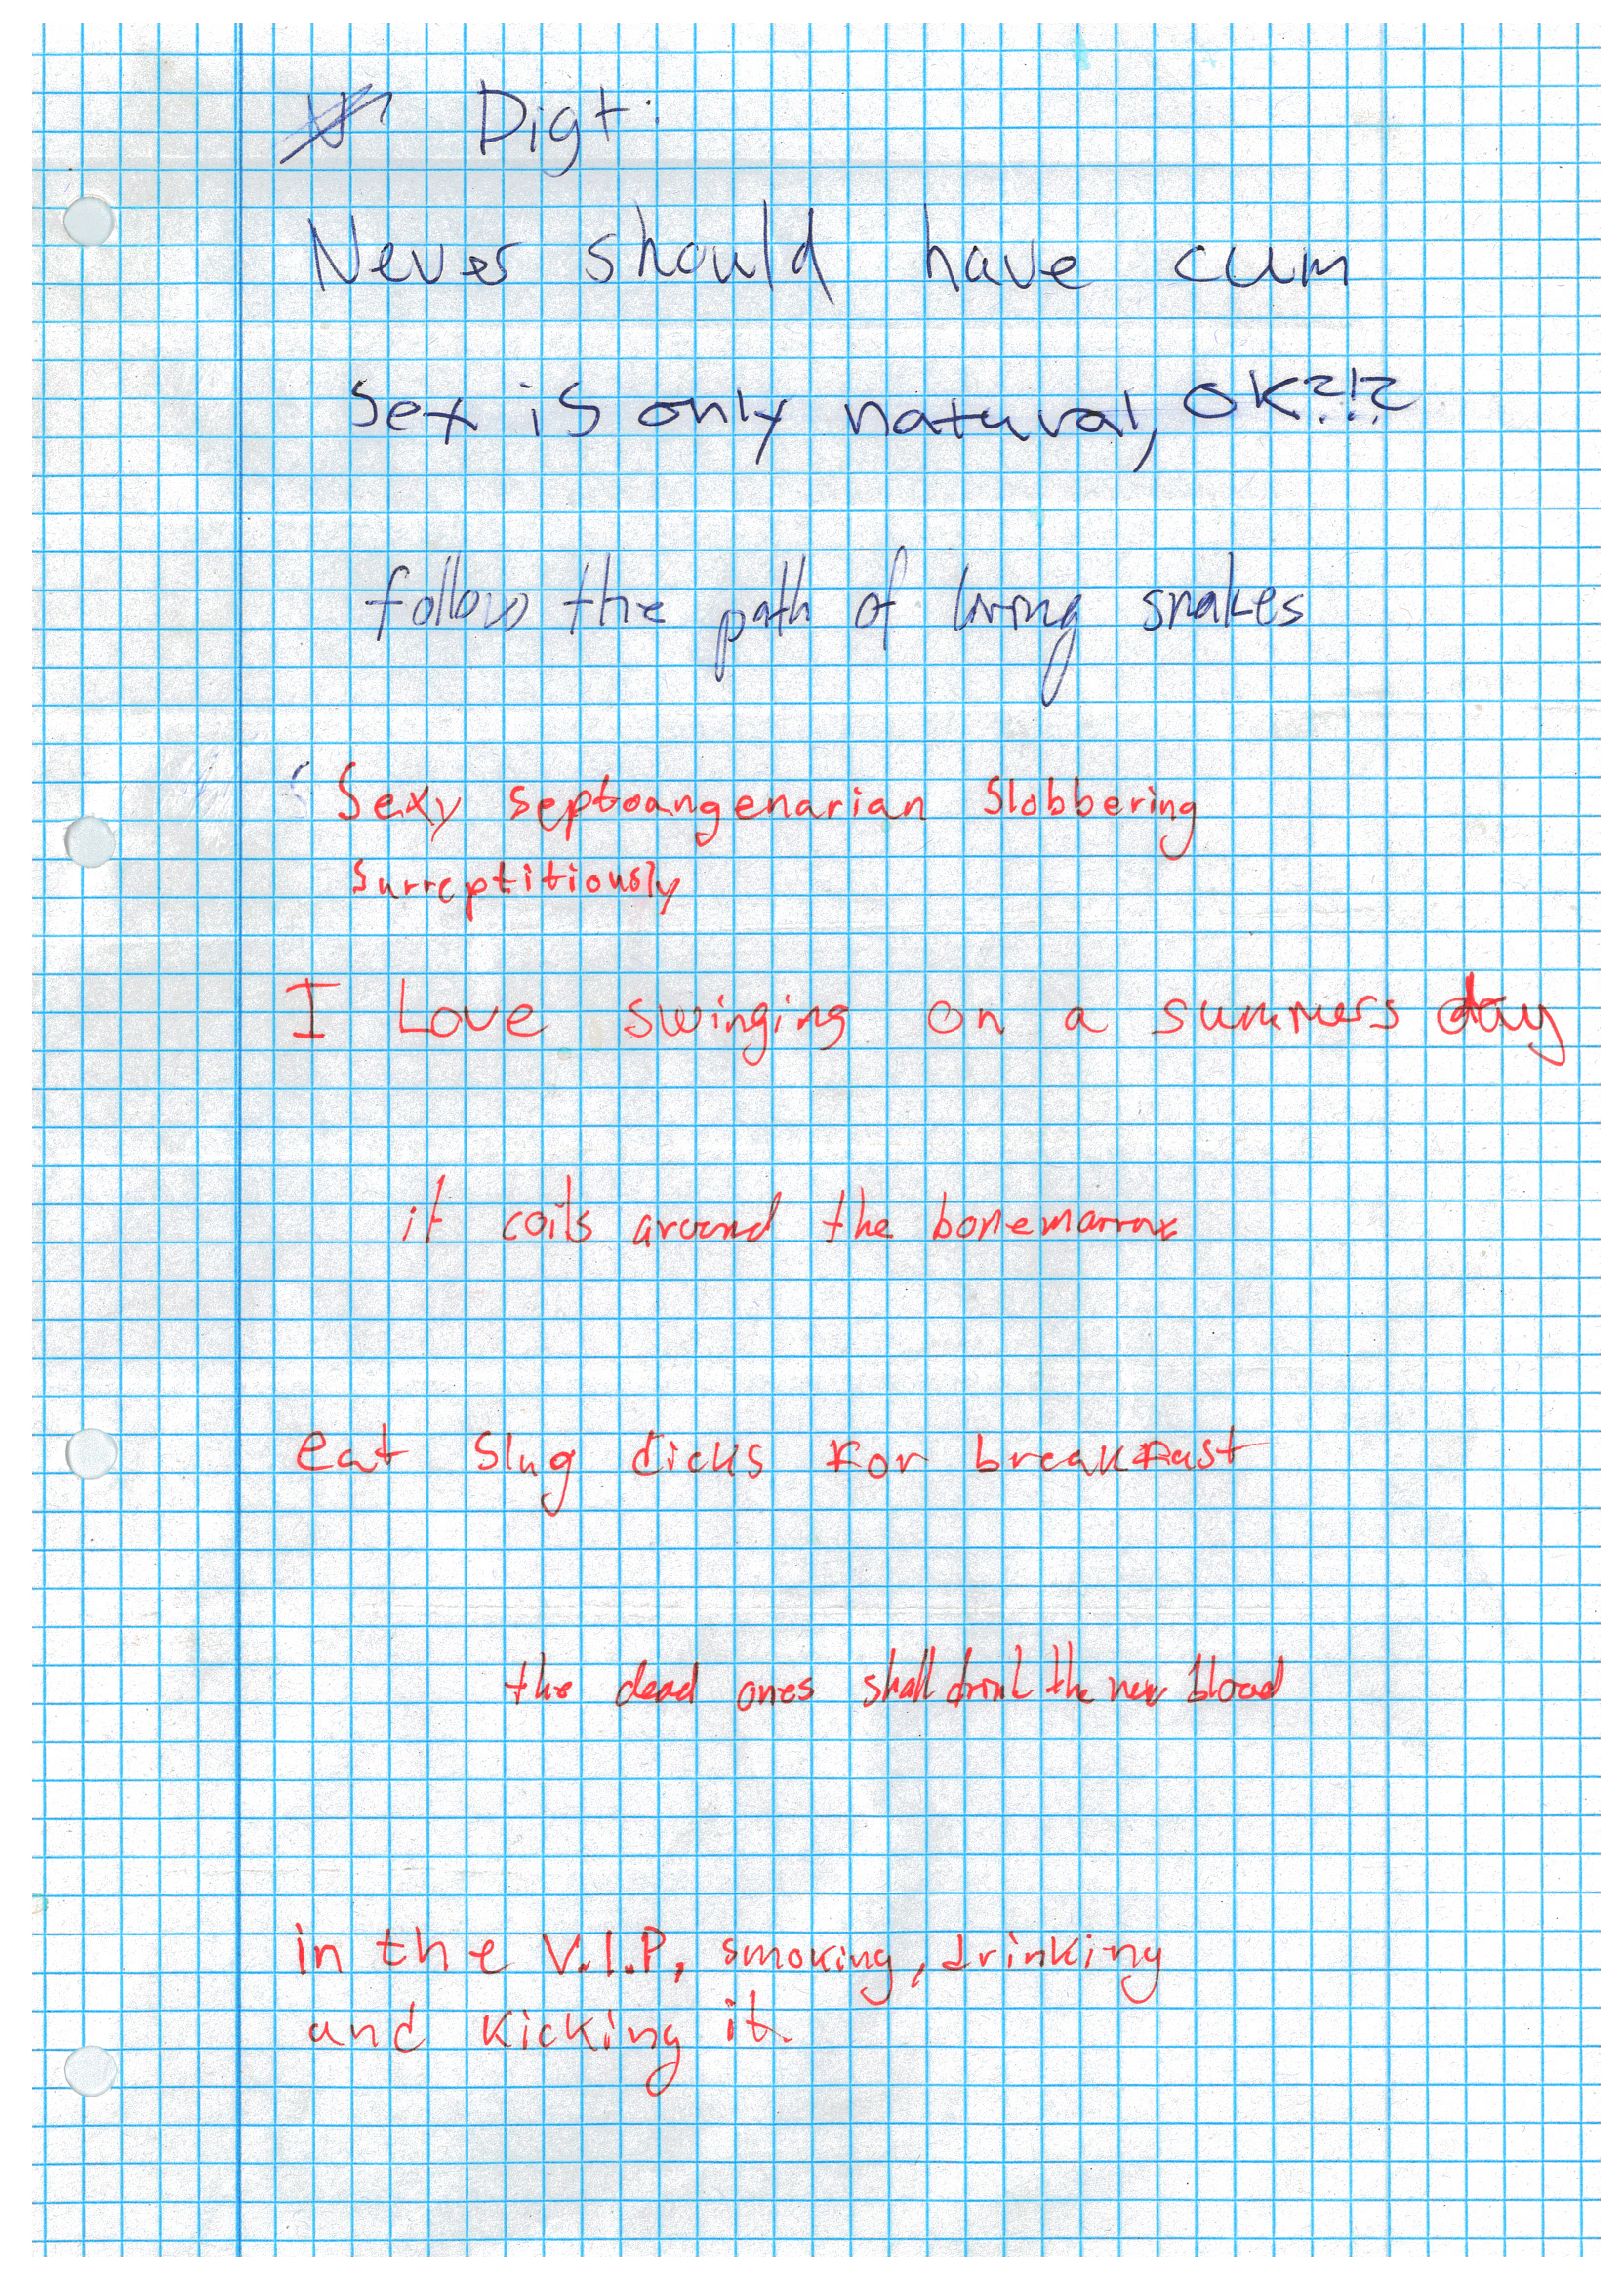 Digt:
Never should have cum
Sex is only natural, OK?!?
follow the path of living snakes
Sexy septoangenarian Slobbering
surreptitiously
I Love swinging on a summers day
it coils around the bonemarrow
eat slug dicks for breakfast
the dead ones shall drink the new blood
in the V.I.P, smoking, drinking
and kicking it.